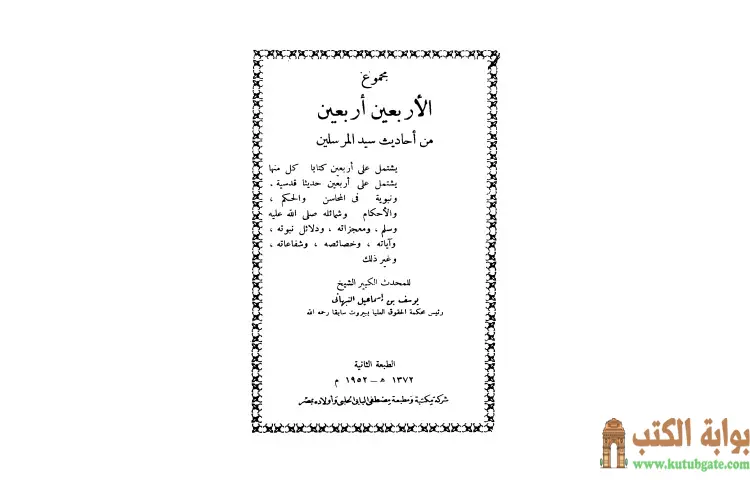 مجموع
الأربعين أربعين
من أحاديث سيد المرسلين
يشتمل على أربعين كتابا كل منها
يشتمل على أربعين حديثا قدسية .
ونبوية فى المحاسن والحكم ،
والأحكام وشمائله صلى الله عليه
وسلم ، ومعجزاته ، ودلائل نبوته ،
وآياته ، وخصائصه ، وشفاعاته ،
وغير ذلك
للمحدث الكبير الشيخ
يوسف بن إسماعيل النبهانى
رئيس محكمة الحقوق العليا ببيروت سابقا رحمه الله
الطبعة الثانية
١٣٧٢ ه – ١٩٥٢ م
شركة مكتبة ومطبعة مصطفى البابى الحلبى وأولاده بمصر
بوابة الكتب
www.kutubgate.com